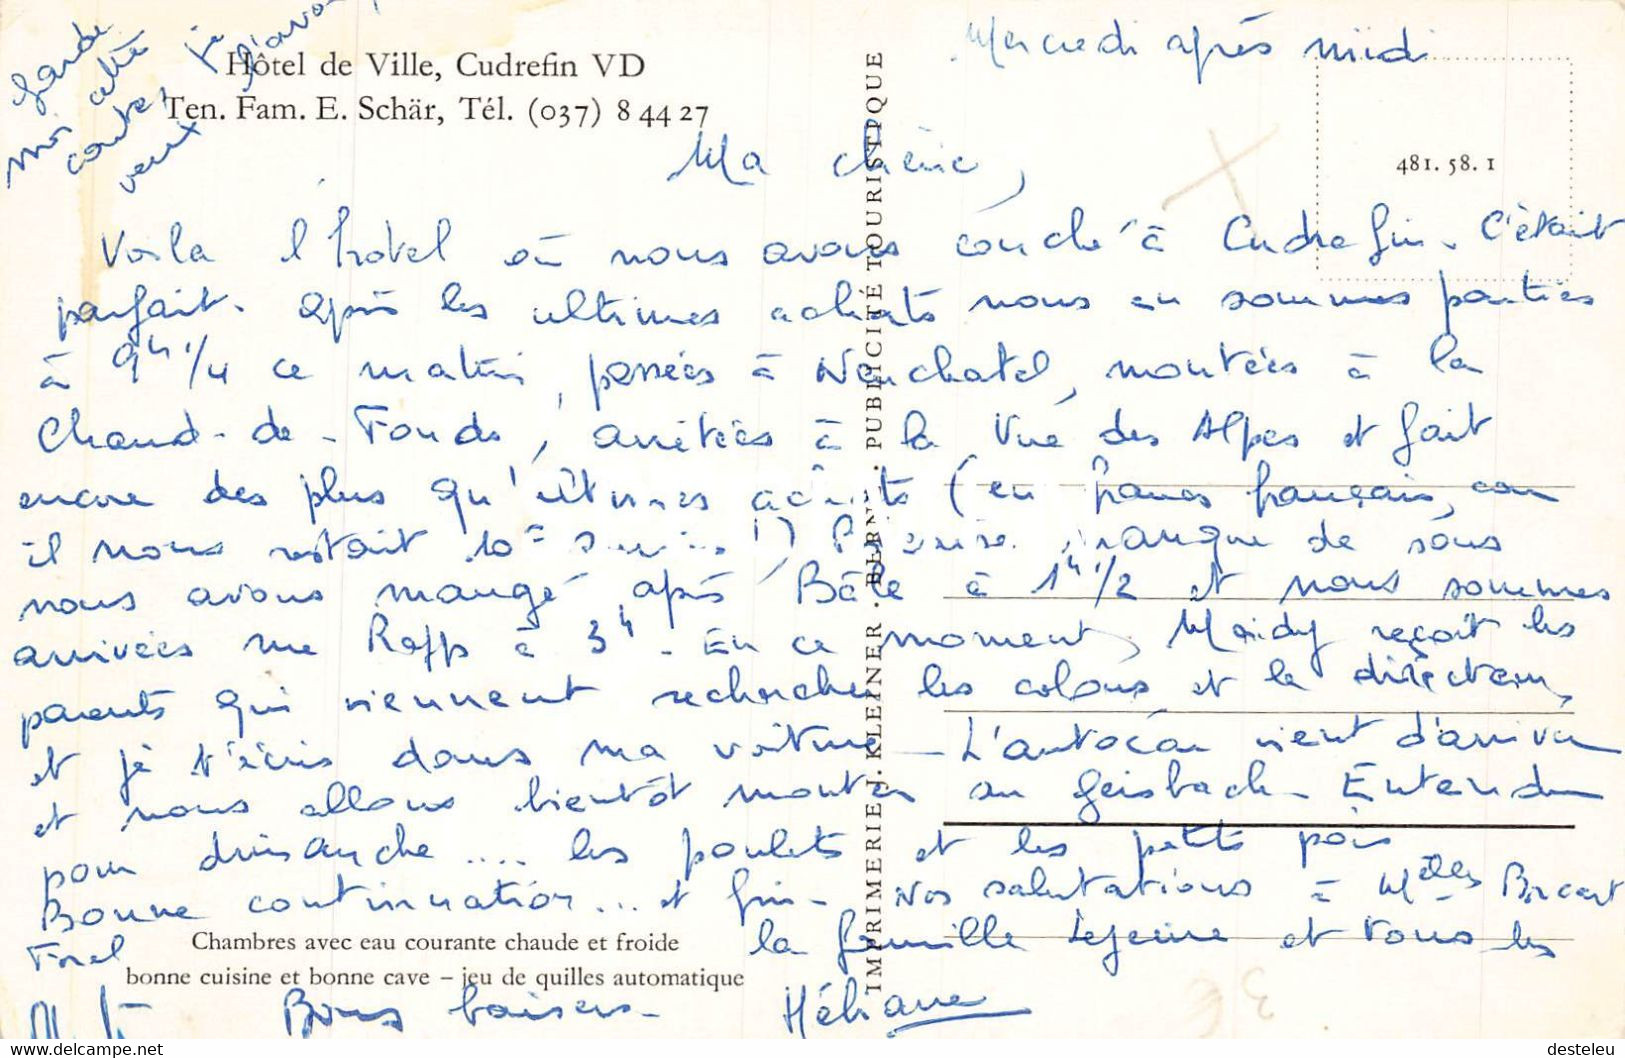 Garde
moi cette
carte, je
veux l'avoir
Hôtel de Ville, Cudrefin VD
Ten. Fam. E. Schär, Tél. (037) 8 44 27
Mercredi après midi
481. 58. 1
Ma chérie,
Voila l'hotel où nous avons couché à Cudrefin. C'était
parfait. Après les ultimes achats nous en sommes parties
à 9h 1/4 ce matin, passées à Neuchatel, montées à la
Chaud-de-Fonds, arrêtées à la Vue des Alpes et fait
encore des plus qu'ultimes achats (en francs français, car
il nous restait 10 !) manque de sous
nous avons mangé après Bâle à 1h 1/2 et nous sommes
arrivées rue Rapp à 3h - En ce moment, Maidy reçoit les
parents qui viennent rechercher les colons et le directeur,
et je t'écris dans ma voiture - L'autocar vient d'arriver
et nous allons bientôt monter au Geisbach - Entendu
pour dimanche .... les poulets et les petits pois
Bonne continuation... et fin - Nos salutations à Melles Bocart
Forel la famille Lejeune et tous les
Bons baisers - Héliane
Chambres avec eau courante chaude et froide
bonne cuisine et bonne cave – jeu de quilles automatique
IMPRIMERIE J. KLEINER . BERN . PUBLICITÉ TOURISTIQUE
desteleu